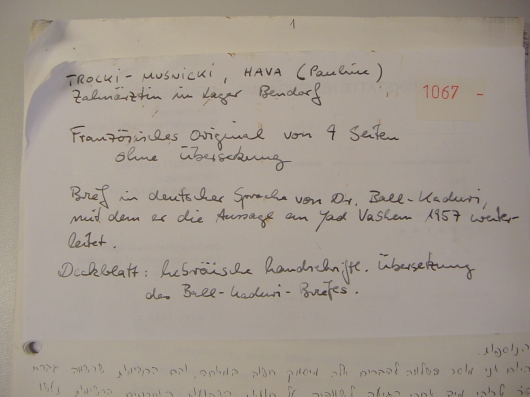 1
TROCKI-MUSNICKI, HAVA (Pauline)
Zahnärztin in Lager Bendorf
1067 -
Französisches Original von 4 Seiten
ohne Übersetzung
Brief in deutscher Sprache von Dr. Ball-Kaduri,
mit dem er die Aussage an Yad Vashem 1957 weiter-
leitet.
Deckblatt: hebräische handschriftl. Übersetzung
des Ball-Kaduri-Briefes.